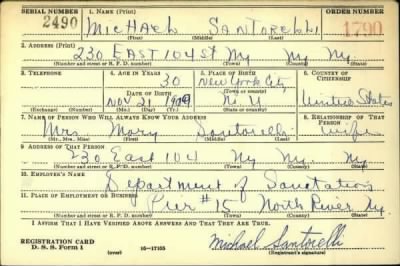 SERIAL NUMBER 1. NAME (Print) ORDER NUMBER
2490 MICHAEL SANTORELLI 1790
(First) (Middle) (Last)
2. ADDRESS (Print)
230 EAST 104 St Ny Ny. Ny.
(Number and street or R. F. D. number) (Town) (County) (State)
3. TELEPHONE 4. AGE IN YEARS 5. PLACE OF BIRTH 6. COUNTRY OF CITIZENSHIP
30 New York City
DATE OF BIRTH (Town or county)
Nov 21 1909 N. Y. United States
(Exchange) (Number) (Mo.) (Day) (Yr.) (State or country)
7. NAME OF PERSON WHO WILL ALWAYS KNOW YOUR ADDRESS 8. RELATIONSHIP OF THAT PERSON
Mrs Mary Santorelli wife
(Mr., Mrs., Miss) (First) (Middle) (Last)
9. ADDRESS OF THAT PERSON
230 East 104 Ny Ny. Ny
(Number and street or R. F. D. number) (Town) (County) (State)
10. EMPLOYER'S NAME
Department of Sanitation
11. PLACE OF EMPLOYMENT OR BUSINESS
Pier #15 North River Ny.
(Number and street or R. F. D. number) (Town) (County) (State)
I AFFIRM THAT I HAVE VERIFIED ABOVE ANSWERS AND THAT THEY ARE TRUE.
REGISTRATION CARD
D. S. S. Form 1 (over) 16—17105 Michael Santorelli
(Registrant's signature)